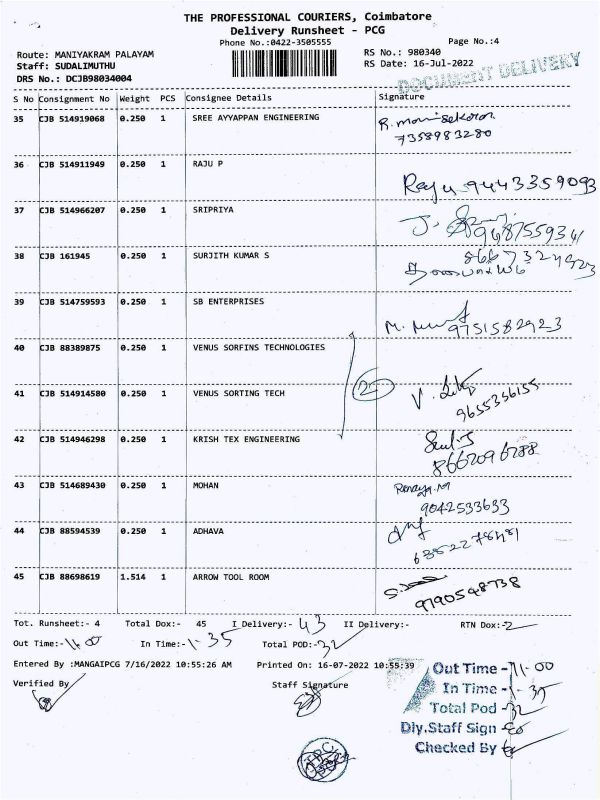 THE PROFESSIONAL COURIERS, Coimbatore
Delivery Runsheet - PCG
Phone No.:0422-3505555
Page No.:4
Route: MANIYAKRAM PALAYAM
RS No.: 980340
Staff: SUDALIMUTHU
RS Date: 16-Jul-2022
DRS No.: DCJB98034004
DOCUMENT DELIVERY
S No Consignment No Weight PCS Consignee Details Signature
35 CJB 514919068 0.250 1 SREE AYYAPPAN ENGINEERING
7358983280
36 CJB 514911949 0.250 1 RAJU P
Raju 9443359093
37 CJB 514966207 0.250 1 SRIPRIYA
38 CJB 161945 0.250 1 SURJITH KUMAR S
39 CJB 514759593 0.250 1 SB ENTERPRISES
9751582923
40 CJB 88389875 0.250 1 VENUS SORFINS TECHNOLOGIES
41 CJB 514914580 0.250 1 VENUS SORTING TECH
2
9655336155
42 CJB 514946298 0.250 1 KRISH TEX ENGINEERING
43 CJB 514689430 0.250 1 MOHAN
9042533633
44 CJB 88594539 0.250 1 ADHAVA
45 CJB 88698619 1.514 1 ARROW TOOL ROOM
9790548738
Tot. Runsheet:- 4 Total Dox:- 45 I Delivery:- 43 II Delivery:- RTN Dox:- 2
Out Time:- 11.00 In Time:- 1-35 Total POD:- 32
Entered By :MANGAIPCG 7/16/2022 10:55:26 AM Printed On: 16-07-2022 10:55:39
Verified By Staff Signature
Out Time - 11-00
In Time - 1-35
Total Pod - 32
Dly.Staff Sign -
Checked By -